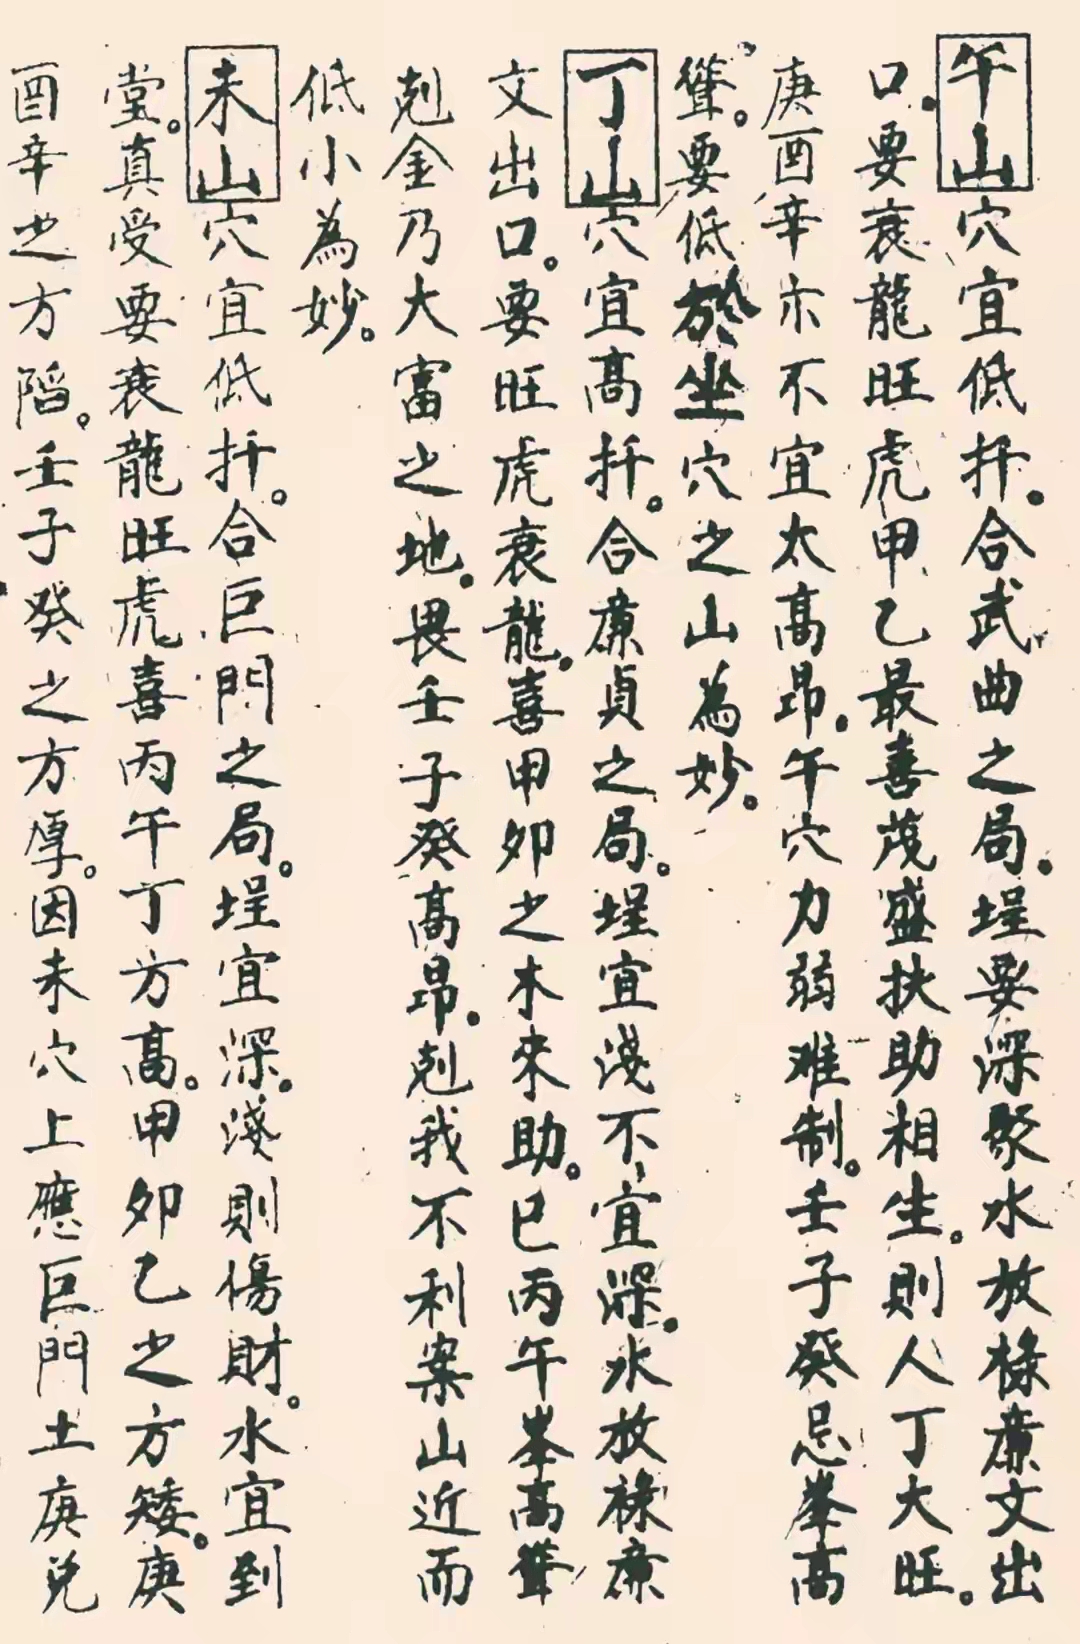 午山穴宜低扦。合武曲之局。埕要深聚水放祿廉文出
口。要衰龍旺虎甲乙最喜茂盛扶助相生。則人丁大旺。
庚酉辛亦不宜太高昂。午穴力弱难制。壬子癸忌峯高
聳。要低於坐穴之山為妙。
丁山穴宜高扦。合廉貞之局。埕宜淺不宜深。水放祿廉
文出口。要旺虎衰龍。喜甲卯之木來助。巳丙午峯高聳
剋金乃大富之地。畏壬子癸高昂。剋我不利案山近而
低小為妙。
未山穴宜低扦。合巨門之局。埕宜深。淺則傷財。水宜到
堂。真受要衰龍旺虎喜丙午丁方高。甲卯乙之方矮。庚
酉辛之方陷。壬子癸之方厚。因未穴上應巨門土庚兌